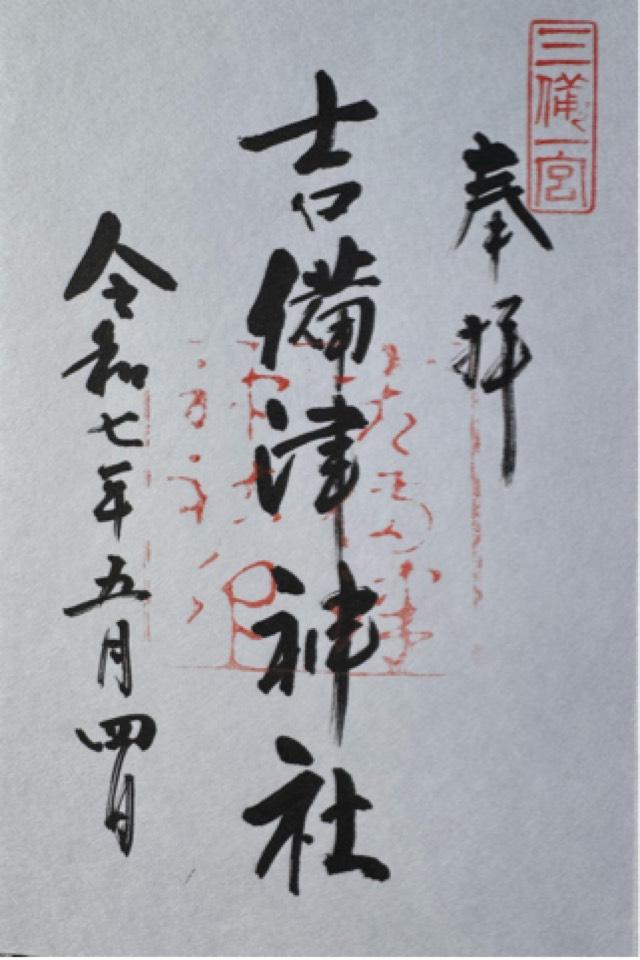 三備一宮
奉拝
吉備津神社
令和七年五月四日